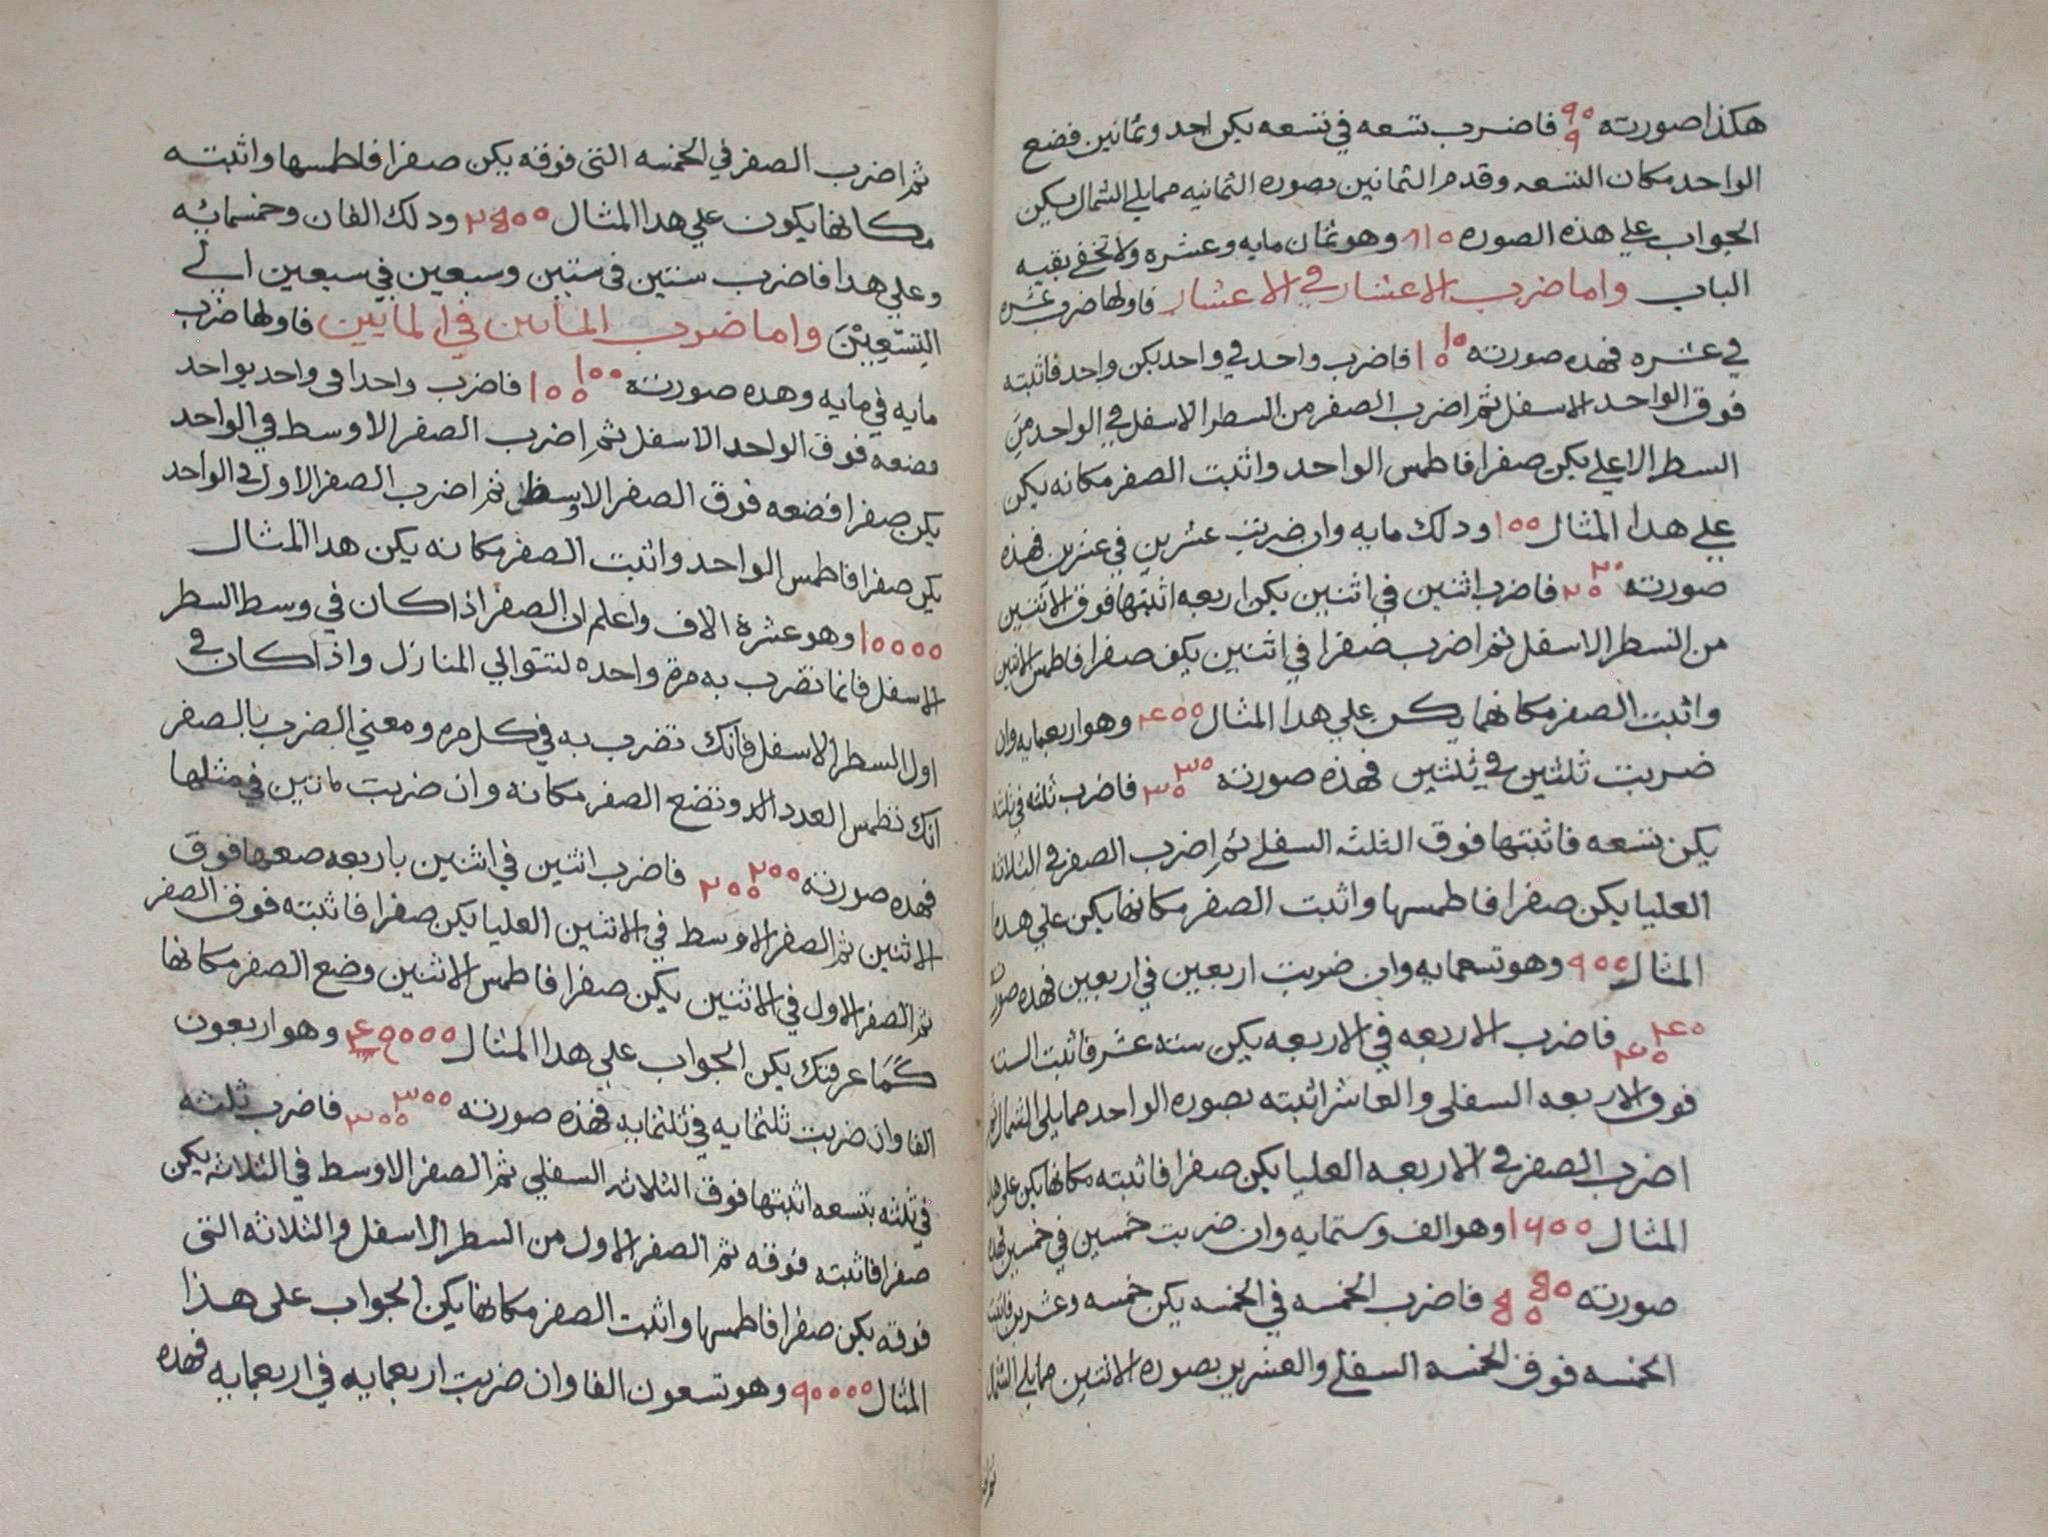 هكذا صورته ٩٥ ٩ فاضرب تسعه في تسعه يكن احد وثمانين فضع
الواحد مكان التسعه وقدم الثمانين بصوره الثمانيه مما يلي الشمال يكن
الجواب علي هذه الصوره ٨١٥ وهو ثمان مايه وعشره ولا تخفي بقيه
الباب واما ضرب الاعشار في الاعشار فاولها ضرب عشره
في عشره فهذه صورته ١٥ ١٥ فاضرب واحد في واحد يكن واحد فاثبته
فوق الواحد الاسفل ثم اضرب الصفر من السطر الاسفل في الواحد من
السطر الاعلي يكن صفرا فاطمس الواحد واثبت الصفر مكانه يكن
علي هذا المثال ١٥٥ وذلك مايه وان ضربت عشرين في عشرين فهذه
صورته ٢٥ ٢٥ فاضرب اثنين في اثنين يكن اربعه اثبتها فوق الاثنين
من السطر الاسفل ثم اضرب صفرا في اثنين يكن صفرا فاطمس الاثنين
واثبت الصفر مكانهما يكن علي هذا المثال ٤٥٥ وهو اربعمايه وان
ضربت ثلثين في ثلثين فهذه صورته ٣٥ ٣٥ فاضرب ثلثه في ثلثه
يكن تسعه فاثبتها فوق الثلثه السفلي ثم اضرب الصفر في الثلاثه
العليا يكن صفرا فاطمسها واثبت الصفر مكانها يكن علي هذا
المثال ٩٥٥ وهو تسعمايه وان ضربت اربعين في اربعين فهذه صورته
٤٥ ٤٥ فاضرب الاربعه في الاربعه يكن سته عشر فاثبت السته
فوق الاربعه السفلي والعاشر اثبته بصوره الواحد مما يلي الشمال ثم
اضرب الصفر في الاربعه العليا يكن صفرا فاثبته مكانها يكن علي هذا
المثال ١٦٥٥ وهو الف وستمايه وان ضربت خمسين في خمسين فهذه
صورته ٥٥ ٥٥ فاضرب الخمسه في الخمسه يكن خمسه وعشرين فاثبت
الخمسه فوق الخمسه السفلي والعشرين بصوره الاثنين مما يلي الشمال
ثم اضرب الصفر في الخمسه التي فوقه يكن صفرا فاطمسها واثبته
مكانها يكون علي هذا المثال ٢٥٥٥ وذلك الفان وخمسمائه
وعلي هذا فاضرب ستين في ستين وسبعين في سبعين الي
التسعين واما ضرب الماءين في الماءين فاولها ضرب
مايه في مايه وهذه صورته ١٥٥ ١٥٥ فاضرب واحدا في واحد بواحد
فضعه فوق الواحد الاسفل ثم اضرب الصفر الاوسط في الواحد
يكن صفرا فضعه فوق الصفر الاوسط ثم اضرب الصفر الاول في الواحد
يكن صفرا فاطمس الواحد واثبت الصفر مكانه يكن هذا المثال
١٥٥٥٥ وهو عشرة الاف واعلم ان الصفر اذا كان في وسط السطر
الاسفل فانما تضرب به مرة واحده لتتوالي المنازل واذا كان في
اول السطر الاسفل فانك تضرب به في كل مره ومعني الضرب بالصفر
انك تطمس العدد الا وتضع الصفر مكانه وان ضربت ماتين في مثلها
فهذه صورته ٢٥٥ ٢٥٥ فاضرب اثنين في اثنين باربعه ضعها فوق
الاثنين ثم الصفر الاوسط في الاثنين العليا يكن صفرا فاثبته فوق الصفر
ثم الصفر الاول في الاثنين يكن صفرا فاطمس الاثنين وضع الصفر مكانها
كما عرفتك يكن الجواب علي هذا المثال ٤٥٥٥٥ وهو اربعون
الفا وان ضربت ثلثمايه في ثلثمايه فهذه صورته ٣٥٥ ٣٥٥ فاضرب ثلثه
في ثلثه بتسعه اثبتها فوق الثلاثه السفلي ثم الصفر الاوسط في الثلاثه يكن
صفرا فاثبته فوقه ثم الصفر الاول من السطر الاسفل والثلاثه التي
فوقه يكن صفرا فاطمسها واثبت الصفر مكانها يكن الجواب علي هذا
المثال ٩٥٥٥٥ وهو تسعون الفا وان ضربت اربعمايه في اربعمايه فهذه